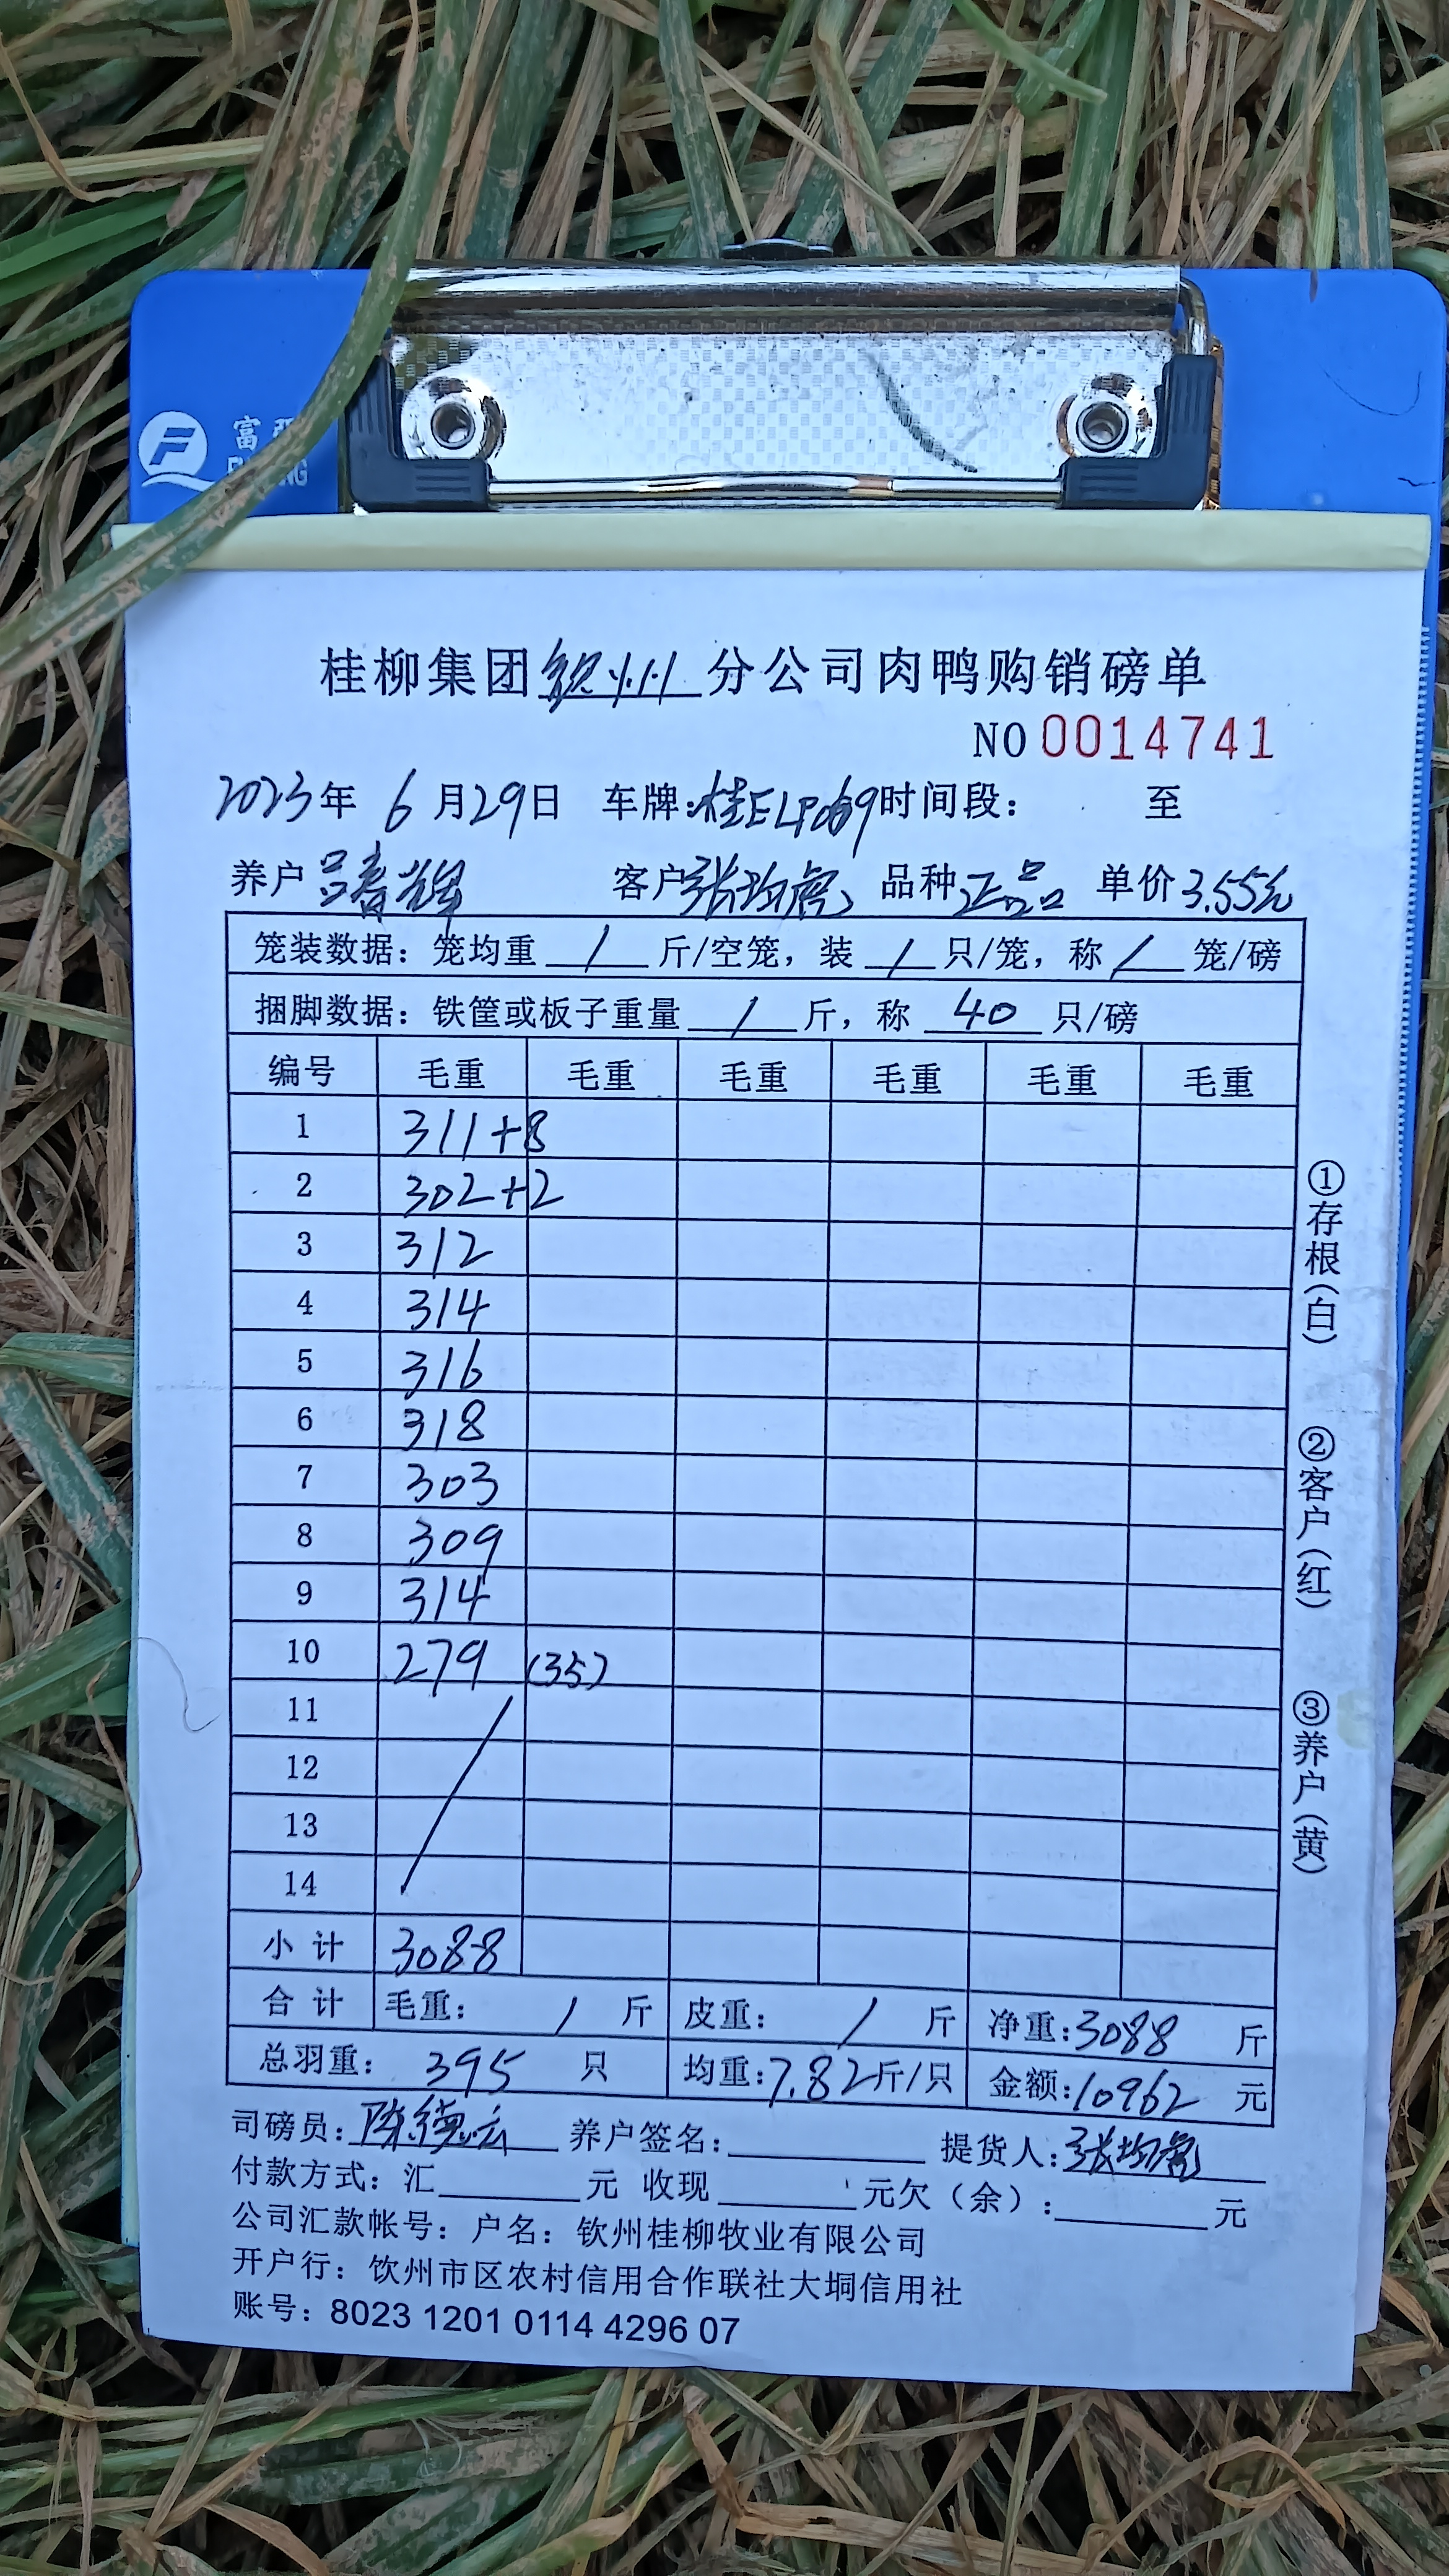 富
桂柳集团钦州分公司肉鸭购销磅单
NO 0014741
2023年 6月29日 车牌:桂E 时间段: 至
养户 吕春辉 客户 张均 品种 正品 单价 3.55元
笼装数据: 笼均重 / 斤/空笼, 装 / 只/笼, 称 / 笼/磅
捆脚数据: 铁筐或板子重量 / 斤, 称 40 只/磅
编号 毛重 毛重 毛重 毛重 毛重 毛重
1 311+8
2 302+2
3 312
4 314
5 316
6 318
7 303
8 309
9 314
10 279 (35)
11
12
13
14
小计 3088
合计 毛重: / 斤 皮重: / 斤 净重:3088 斤
总羽重: 395 只 均重:7.82斤/只 金额:10962 元
司磅员:陈德 养户签名: 提货人:张均
付款方式: 汇 元 收现 元欠(余): 元
公司汇款帐号: 户名: 钦州桂柳牧业有限公司
开户行: 饮州市区农村信用合作联社大垌信用社
账号: 8023 1201 0114 4296 07
①存根(白)
②客户(红)
③养户(黄)